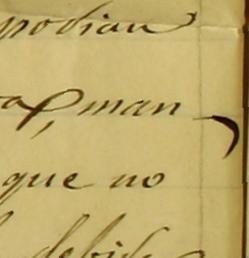 podian
man
que no
debid